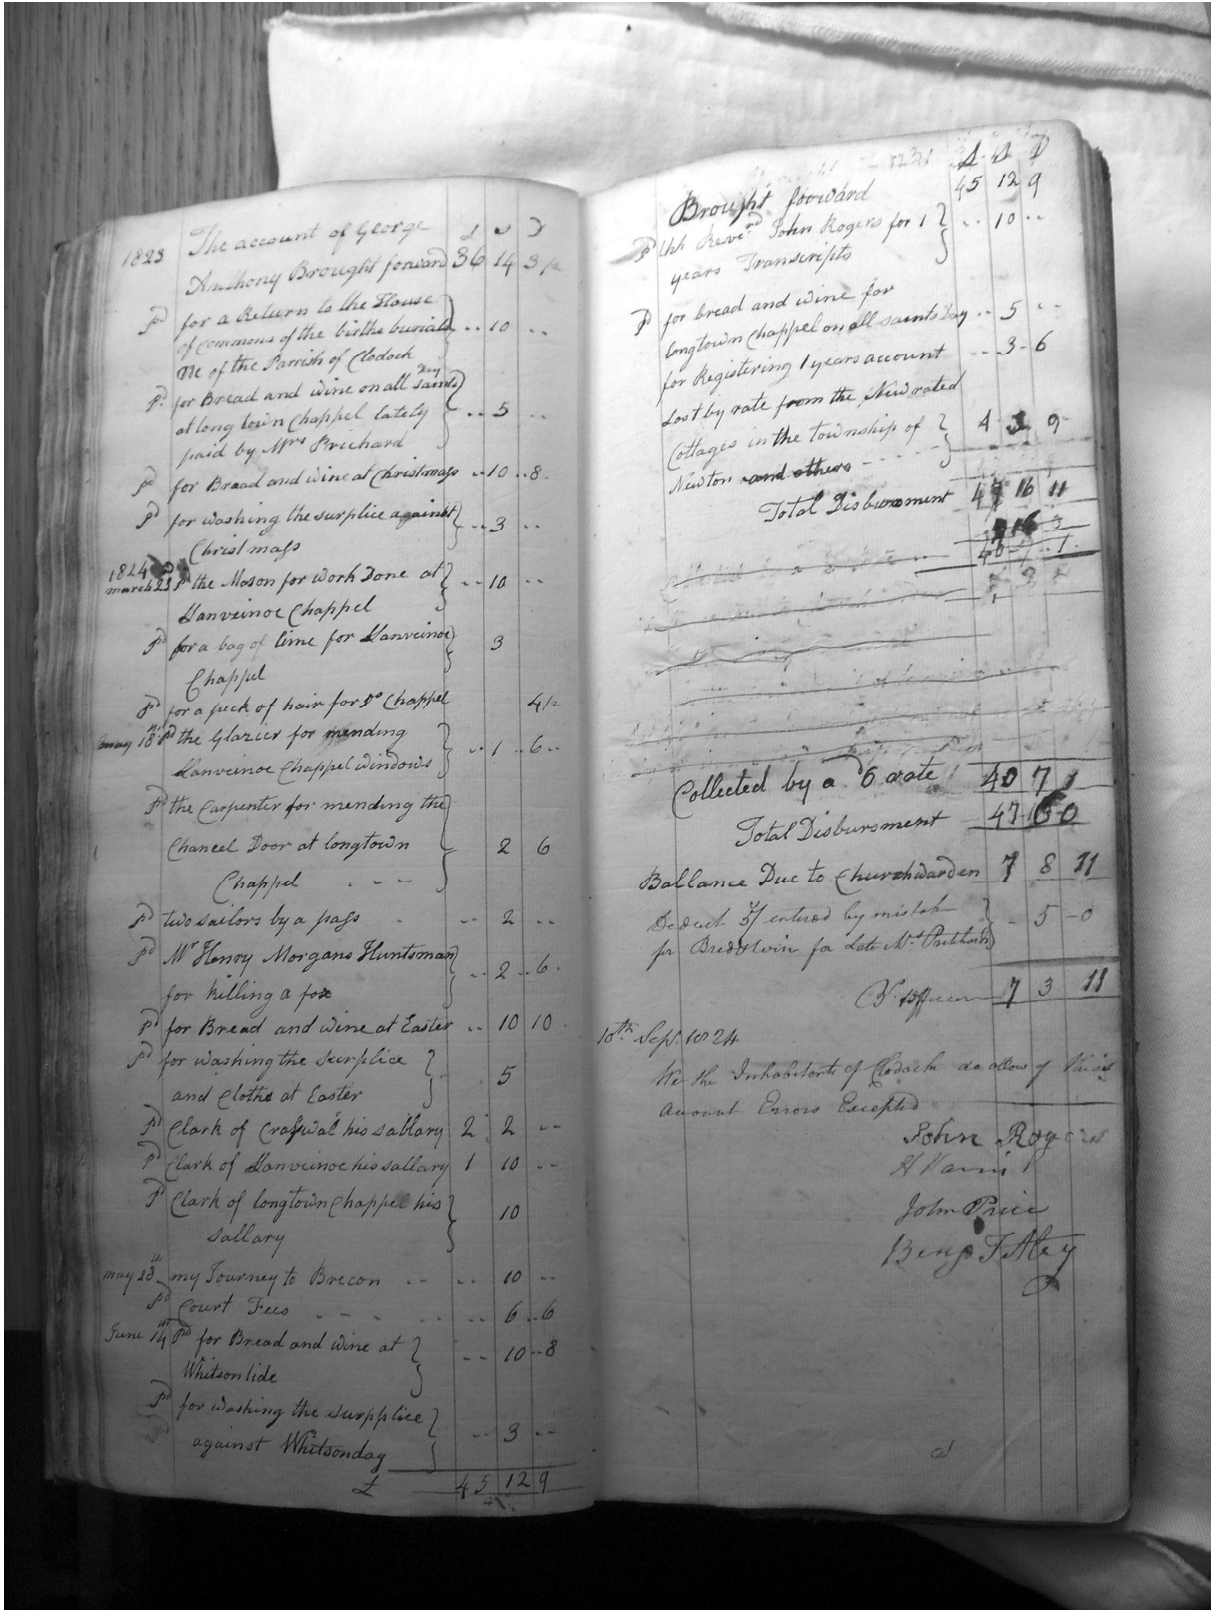 1823 The account of George £ S D
Anthony Brought forward 36 14 3 1/2
Pd for a Return to the House
of commons of the births burials .. 10 ..
of the Parrish of Clodock
Pd for Bread and wine on all saints Day
at long town Chappel lately .. 5 ..
paid by Mrs Prichard
Pd for Bread and wine at Christmass .. 10 .. 8
Pd for washing the surplice against .. 3 ..
Christmass
1824
march 23 Pd the Mason for work Done at .. 10 ..
Llanveinoe Chappel
Pd for a bag of lime for Llanveinoe 3
Chappel
Pd for a peck of hair for Do Chappel 4 1/2
may 18th Pd the Glazier for mending
Llanveinoe Chappel windows .. 1 .. 6 ..
Pd the Carpenter for mending the
Chancel Door at longtown 2 6
Chappel . - - -
Pd two sailors by a pass - .. 2 ..
Pd Mr Henry Morgans Huntsman .. 2 .. 6 .
for killing a fox
Pd for Bread and wine at Easter .. 10 10 .
Pd for washing the surplice 5
and Cloths at Easter
Pd Clark of Craswal his sallary 2 2 ..
Pd Clark of Llanveinoe his sallary 1 10 ..
Pd Clark of longtown Chappel his 10
sallary
may 28th my Journey to Brecon .. .. 10 ..
Pd Court Fees - - - .. 6 .. 6
June 14th Pd for Bread and wine at .. 10 .. 8
Whitsontide
Pd for washing the surpplice
against Whitsonday .. 3 ..
£ 45 12 9
£ S D
Brought forward 45 12 9
Pd the Revernd John Rogers for 1 .. 10 ..
years Transcripts
Pd for bread and wine for
longtown Chappel on all saints Day .. 5 ..
for Registering 1 years account .. 3 - 6
Lost by rate from the New rated
Cottages in the township of 4 9
Newton and others - - - -
Total Disbursment 47 16 11
Collected by a 6d rate 40 7 1
Total Disbursment 47 16 0
Ballance Due to Churchwarden 7 8 11
Deduct 5/ entered by mistake - 5 - 0
for Bred & win for Late Mrs Pritchard
7 3 11
10th Sep. 1824
We the Inhabitants of Clodock do allow of this
Account Errors Excepted
John Rogers
John Price